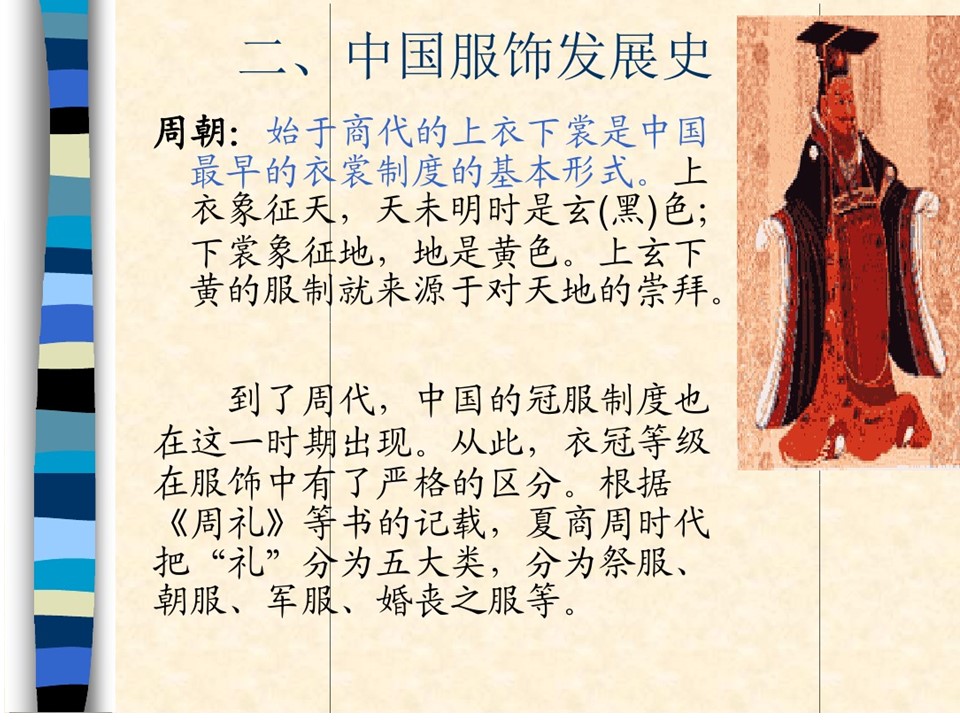 二、中国服饰发展史
周朝：始于商代的上衣下裳是中国
最早的衣裳制度的基本形式。上
衣象征天，天未明时是玄(黑)色；
下裳象征地，地是黄色。上玄下
黄的服制就来源于对天地的崇拜。
到了周代，中国的冠服制度也
在这一时期出现。从此，衣冠等级
在服饰中有了严格的区分。根据
《周礼》等书的记载，夏商周时代
把“礼”分为五大类，分为祭服、
朝服、军服、婚丧之服等。